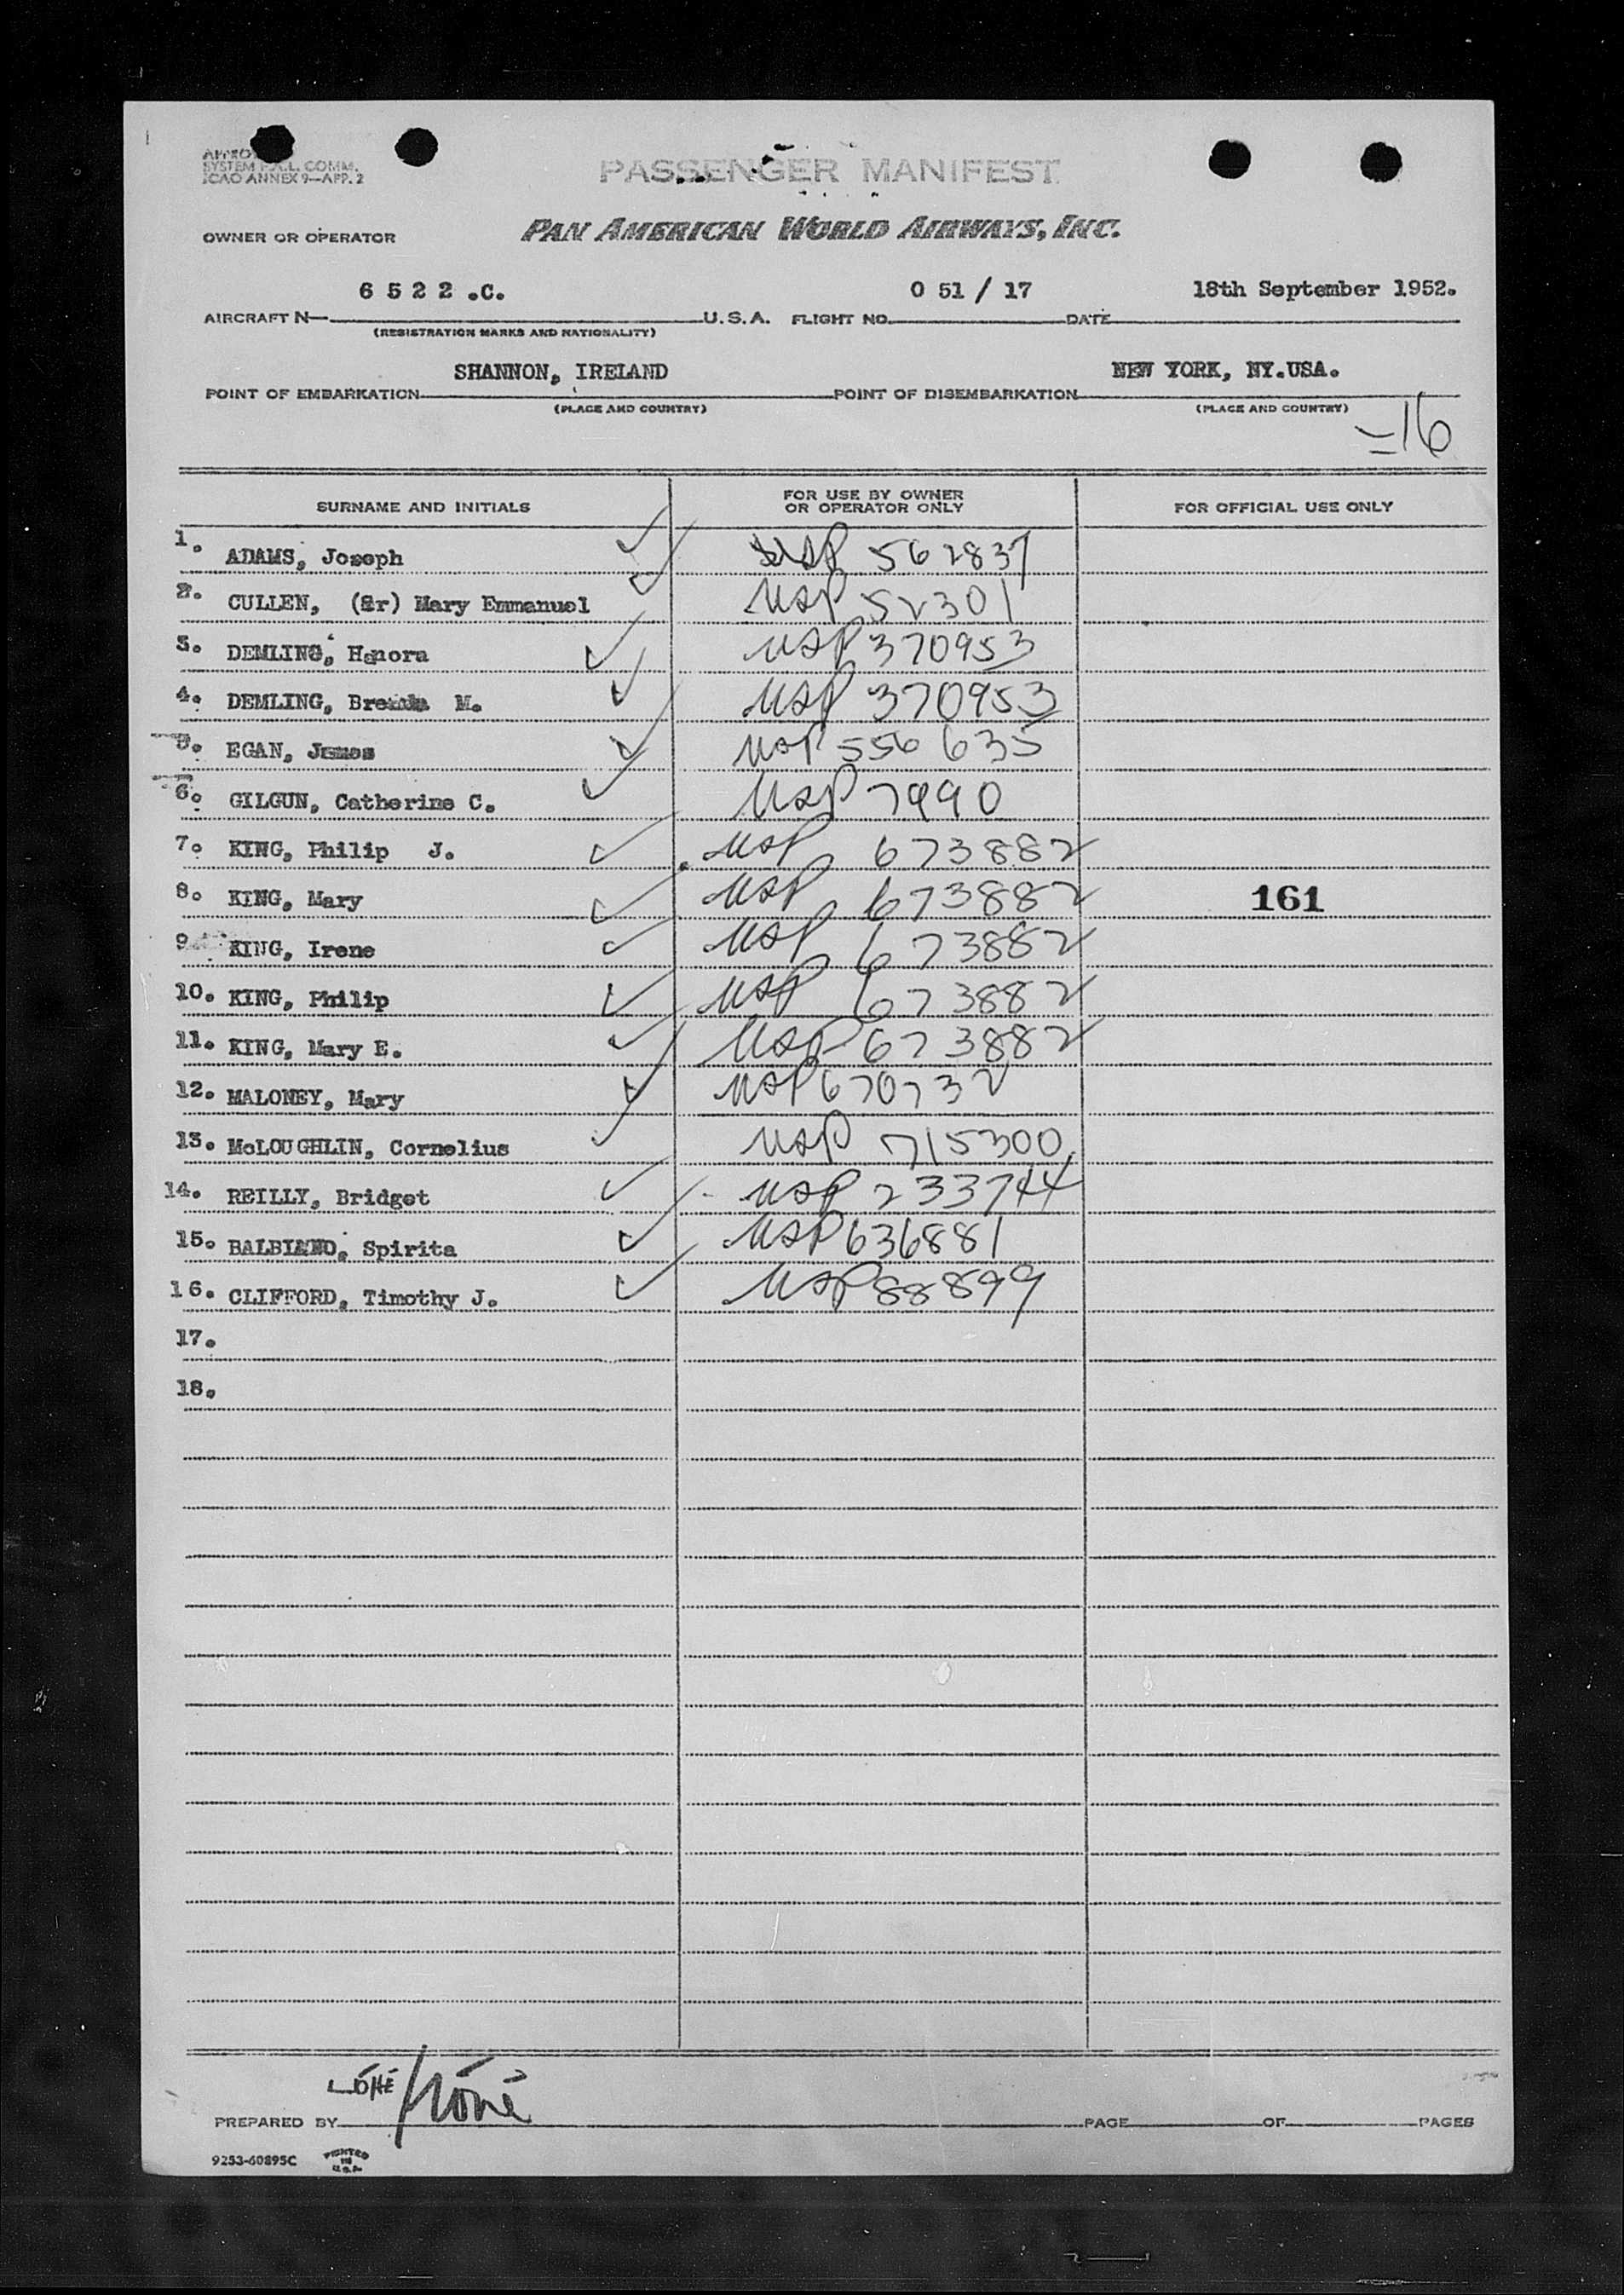 SYSTEM COMM.
ICAO ANNEX 9—APP. 2
PASSENGER MANIFEST
OWNER OR OPERATOR PAN AMERICAN WORLD AIRWAYS, INC.
6 5 2 2 .C. 0 51 / 17 18th September 1952.
AIRCRAFT N— U.S.A. FLIGHT NO. DATE
(REGISTRATION MARKS AND NATIONALITY)
SHANNON, IRELAND NEW YORK, NY.USA.
POINT OF EMBARKATION POINT OF DISEMBARKATION
(PLACE AND COUNTRY) (PLACE AND COUNTRY)
=16
SURNAME AND INITIALS FOR USE BY OWNER OR OPERATOR ONLY FOR OFFICIAL USE ONLY
1. ADAMS, Joseph USP 562837
2. CULLEN, (Sr) Mary Emmanuel USP 52301
3. DEMLING, Honora USP 370953
4. DEMLING, Brenda M. USP 370953
5. EGAN, James USP 556635
6. GILGUN, Catherine C. USP 7990
7. KING, Philip J. USP 673882
8. KING, Mary USP 673882 161
9. KING, Irene USP 673882
10. KING, Philip USP 673882
11. KING, Mary E. USP 673882
12. MALONEY, Mary USP 670732
13. McLOUGHLIN, Cornelius USP 715300
14. REILLY, Bridget USP 233744
15. BALBIANO, Spirita USP 636881
16. CLIFFORD, Timothy J. USP 88899
17.
18.
PREPARED BY PAGE OF PAGES
9253-60895C PRINTED IN U.S.A.